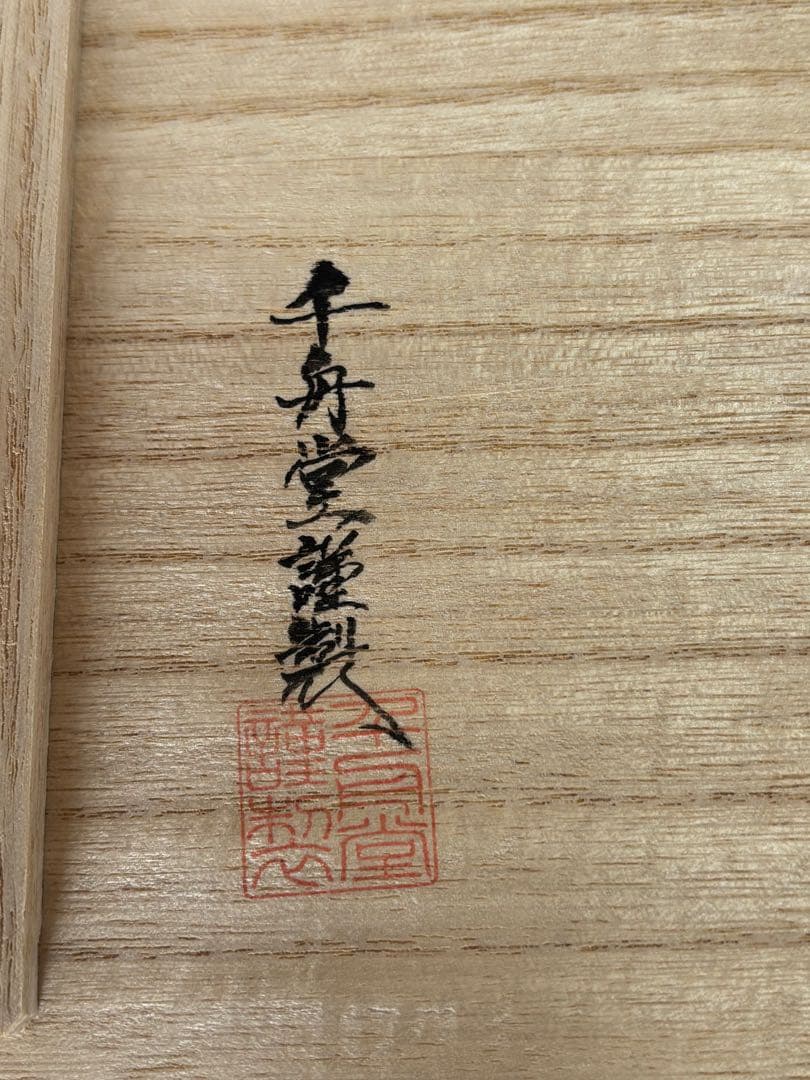 千舟堂謹製
千舟堂
謹製